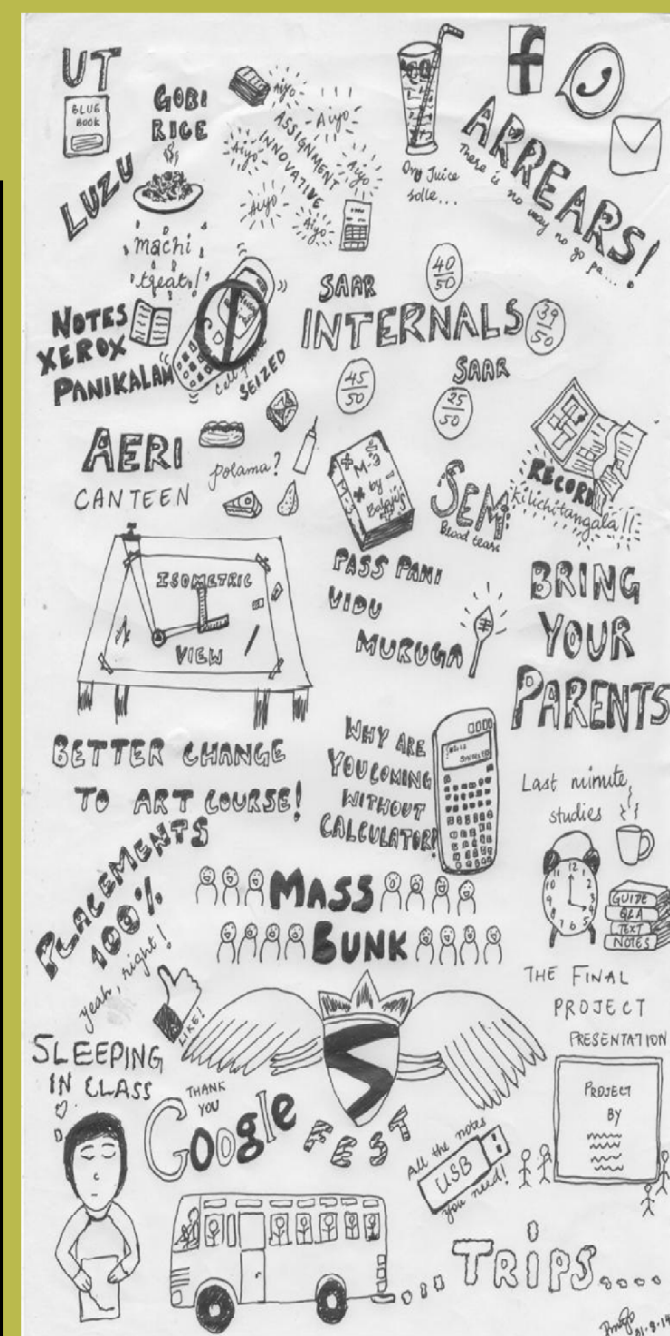 UT
BLUE
BOOK
GOBI
RICE
LUZU
Aiyo
Aiyo
Aiyo
Aiyo
Aiyo
Aiyo
ASSIGNMENT
INNOVATIVE
Juice
solle...
f
ARREARS!
There is no way no go pa...
machi
treat!
NOTES
XEROX
PANIKALAM
Cell Phone
SEIZED
SAAR
INTERNALS
SAAR
40/50
39/50
45/50
25/50
AERI
CANTEEN
polama?
M3
by
SEM
Blood tears
RECORD
kilichitangala!!
PASS PANI
VIDU
MURUGA
ISOMETRIC
VIEW
BRING
YOUR
PARENTS
BETTER CHANGE
TO ART COURSE!
WHY ARE
YOU COMING
WITHOUT
CALCULATOR!
Last minute
studies
GUIDE
Q&A
TEXT
NOTES
PLACEMENTS
100%
yeah, right!
LIKE!
MASS
BUNK
THE FINAL
PROJECT
PRESENTATION
PROJECT
BY
SLEEPING
IN CLASS
THANK
YOU
Google
S
FEST
All the notes
USB
you need!
...TRIPS....